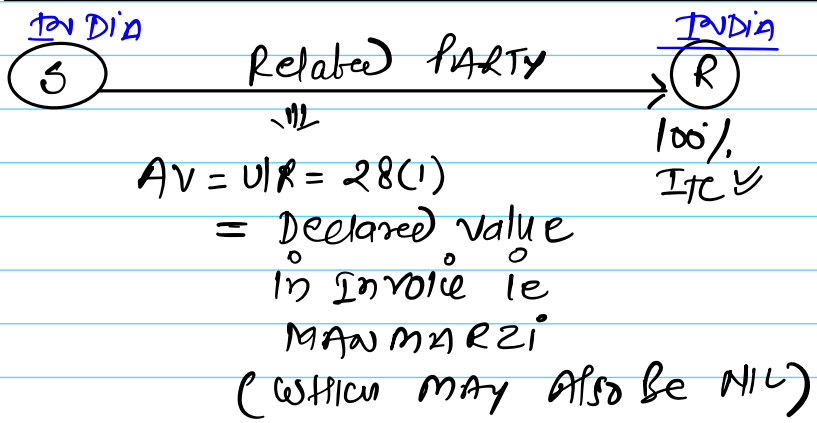 INDIA INDIA
S Related PARTY R
100%
AV = U/R = 28(1) ITC
= Declared value
in Invoice ie
MANMARZi
(WHICH MAY Also Be NIL)